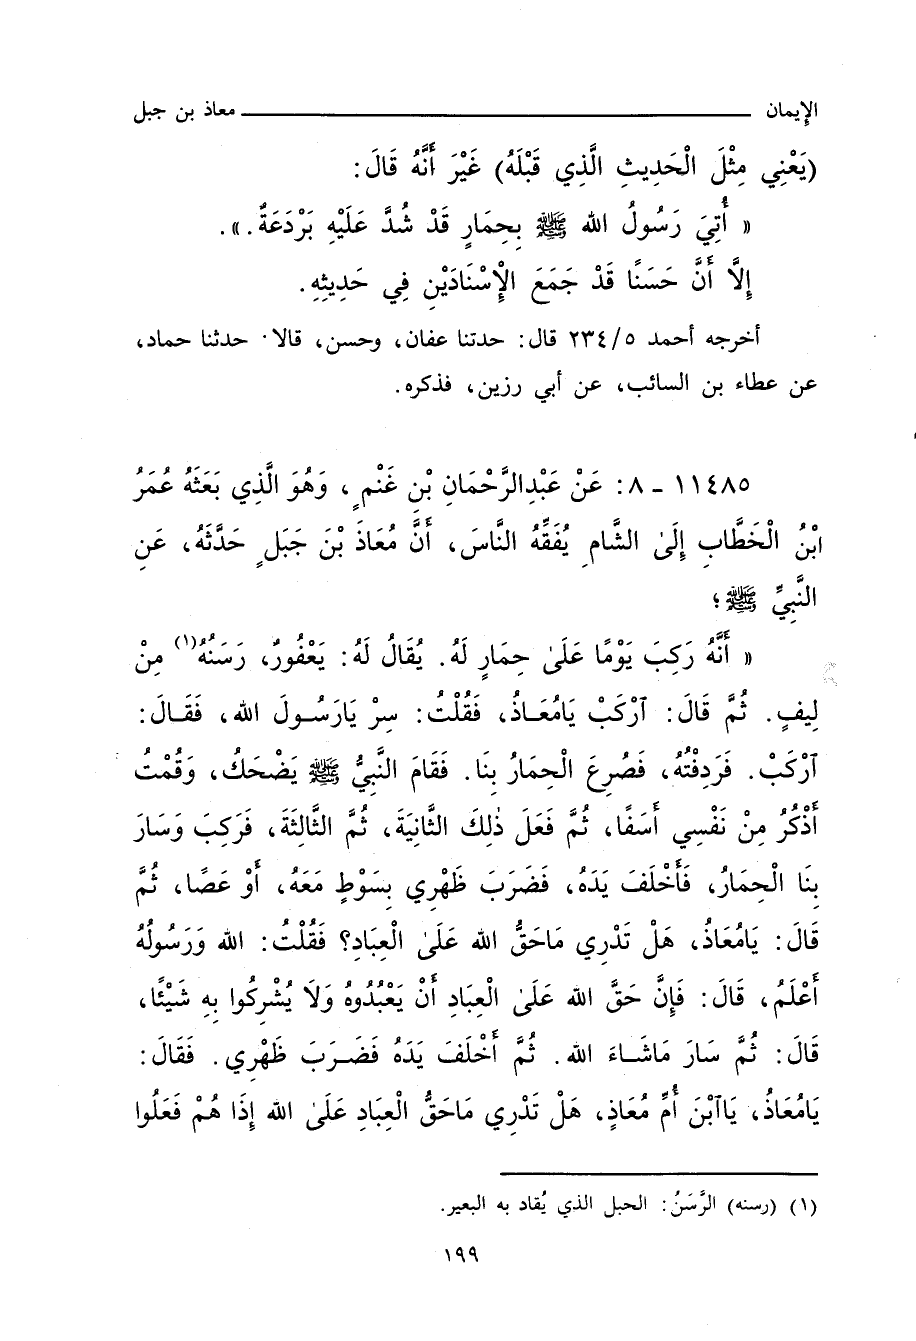 الإيمان ــــــــــــــــــــ معاذ بن جبل
(يَعْنِي مِثْلَ الْحَدِيثِ الَّذِي قَبْلَهُ) غَيْرَ أَنَّهُ قَالَ:
« أُتِيَ رَسُولُ الله ﷺ بِحِمَارٍ قَدْ شُدَّ عَلَيْهِ بَرْدَعَةٌ. ».
إِلَّا أَنَّ حَسَنًا قَدْ جَمَعَ الْإِسْنَادَيْنِ فِي حَدِيثِهِ.
أخرجه أحمد ٢٣٤/٥ قال: حدتنا عفان، وحسن، قالا· حدثنا حماد،
عن عطاء بن السائب، عن أبي رزين، فذكره.
١١٤٨٥ - ٨: عَنْ عَبْدِالرَّحْمَانِ بْنِ غَنْمٍ، وَهُوَ الَّذِي بَعَثَهُ عُمَرُ
ابْنُ الْخَطَّابِ إِلَىٰ الشَّامِ يُفَقِّهُ النَّاسَ، أَنَّ مُعَاذَ بْنَ جَبَلٍ حَدَّثَهُ، عَنِ
النَّبِيِّ ﷺ؛
« أَنَّهُ رَكِبَ يَوْمًا عَلَىٰ حِمَارٍ لَهُ. يُقَالُ لَهُ: يَعْفُورٌ، رَسَنُهُ(١) مِنْ
لِيفٍ. ثُمَّ قَالَ: ٱرْكَبْ يَامُعَاذُ، فَقُلْتُ: سِرْ يَارَسُولَ الله، فَقَالَ:
ٱرْكَبْ. فَرَدِفْتُهُ، فَصُرِعَ الْحِمَارُ بِنَا. فَقَامَ النَّبِيُّ ﷺ يَضْحَكُ، وَقُمْتُ
أَذْكُرُ مِنْ نَفْسِي أَسَفًا، ثُمَّ فَعَلَ ذٰلِكَ الثَّانِيَةَ، ثُمَّ الثَّالِثَةَ، فَرَكِبَ وَسَارَ
بِنَا الْحِمَارُ، فَأَخْلَفَ يَدَهُ، فَضَرَبَ ظَهْرِي بِسَوْطٍ مَعَهُ، أَوْ عَصًا، ثُمَّ
قَالَ: يَامُعَاذُ، هَلْ تَدْرِي مَاحَقُّ الله عَلَىٰ الْعِبَادِ؟ فَقُلْتُ: الله وَرَسُولُهُ
أَعْلَمُ، قَالَ: فَإِنَّ حَقَّ الله عَلَىٰ الْعِبَادِ أَنْ يَعْبُدُوهُ وَلَا يُشْرِكُوا بِهِ شَيْئًا،
قَالَ: ثُمَّ سَارَ مَاشَاءَ الله. ثُمَّ أَخْلَفَ يَدَهُ فَضَرَبَ ظَهْرِي. فَقَالَ:
يَامُعَاذُ، يَاٱبْنَ أُمِّ مُعَاذٍ، هَلْ تَدْرِي مَاحَقُّ الْعِبَادِ عَلَىٰ الله إِذَا هُمْ فَعَلُوا
(١) (رسنه) الرَّسَنُ: الحبل الذي يُقاد به البعير.
١٩٩